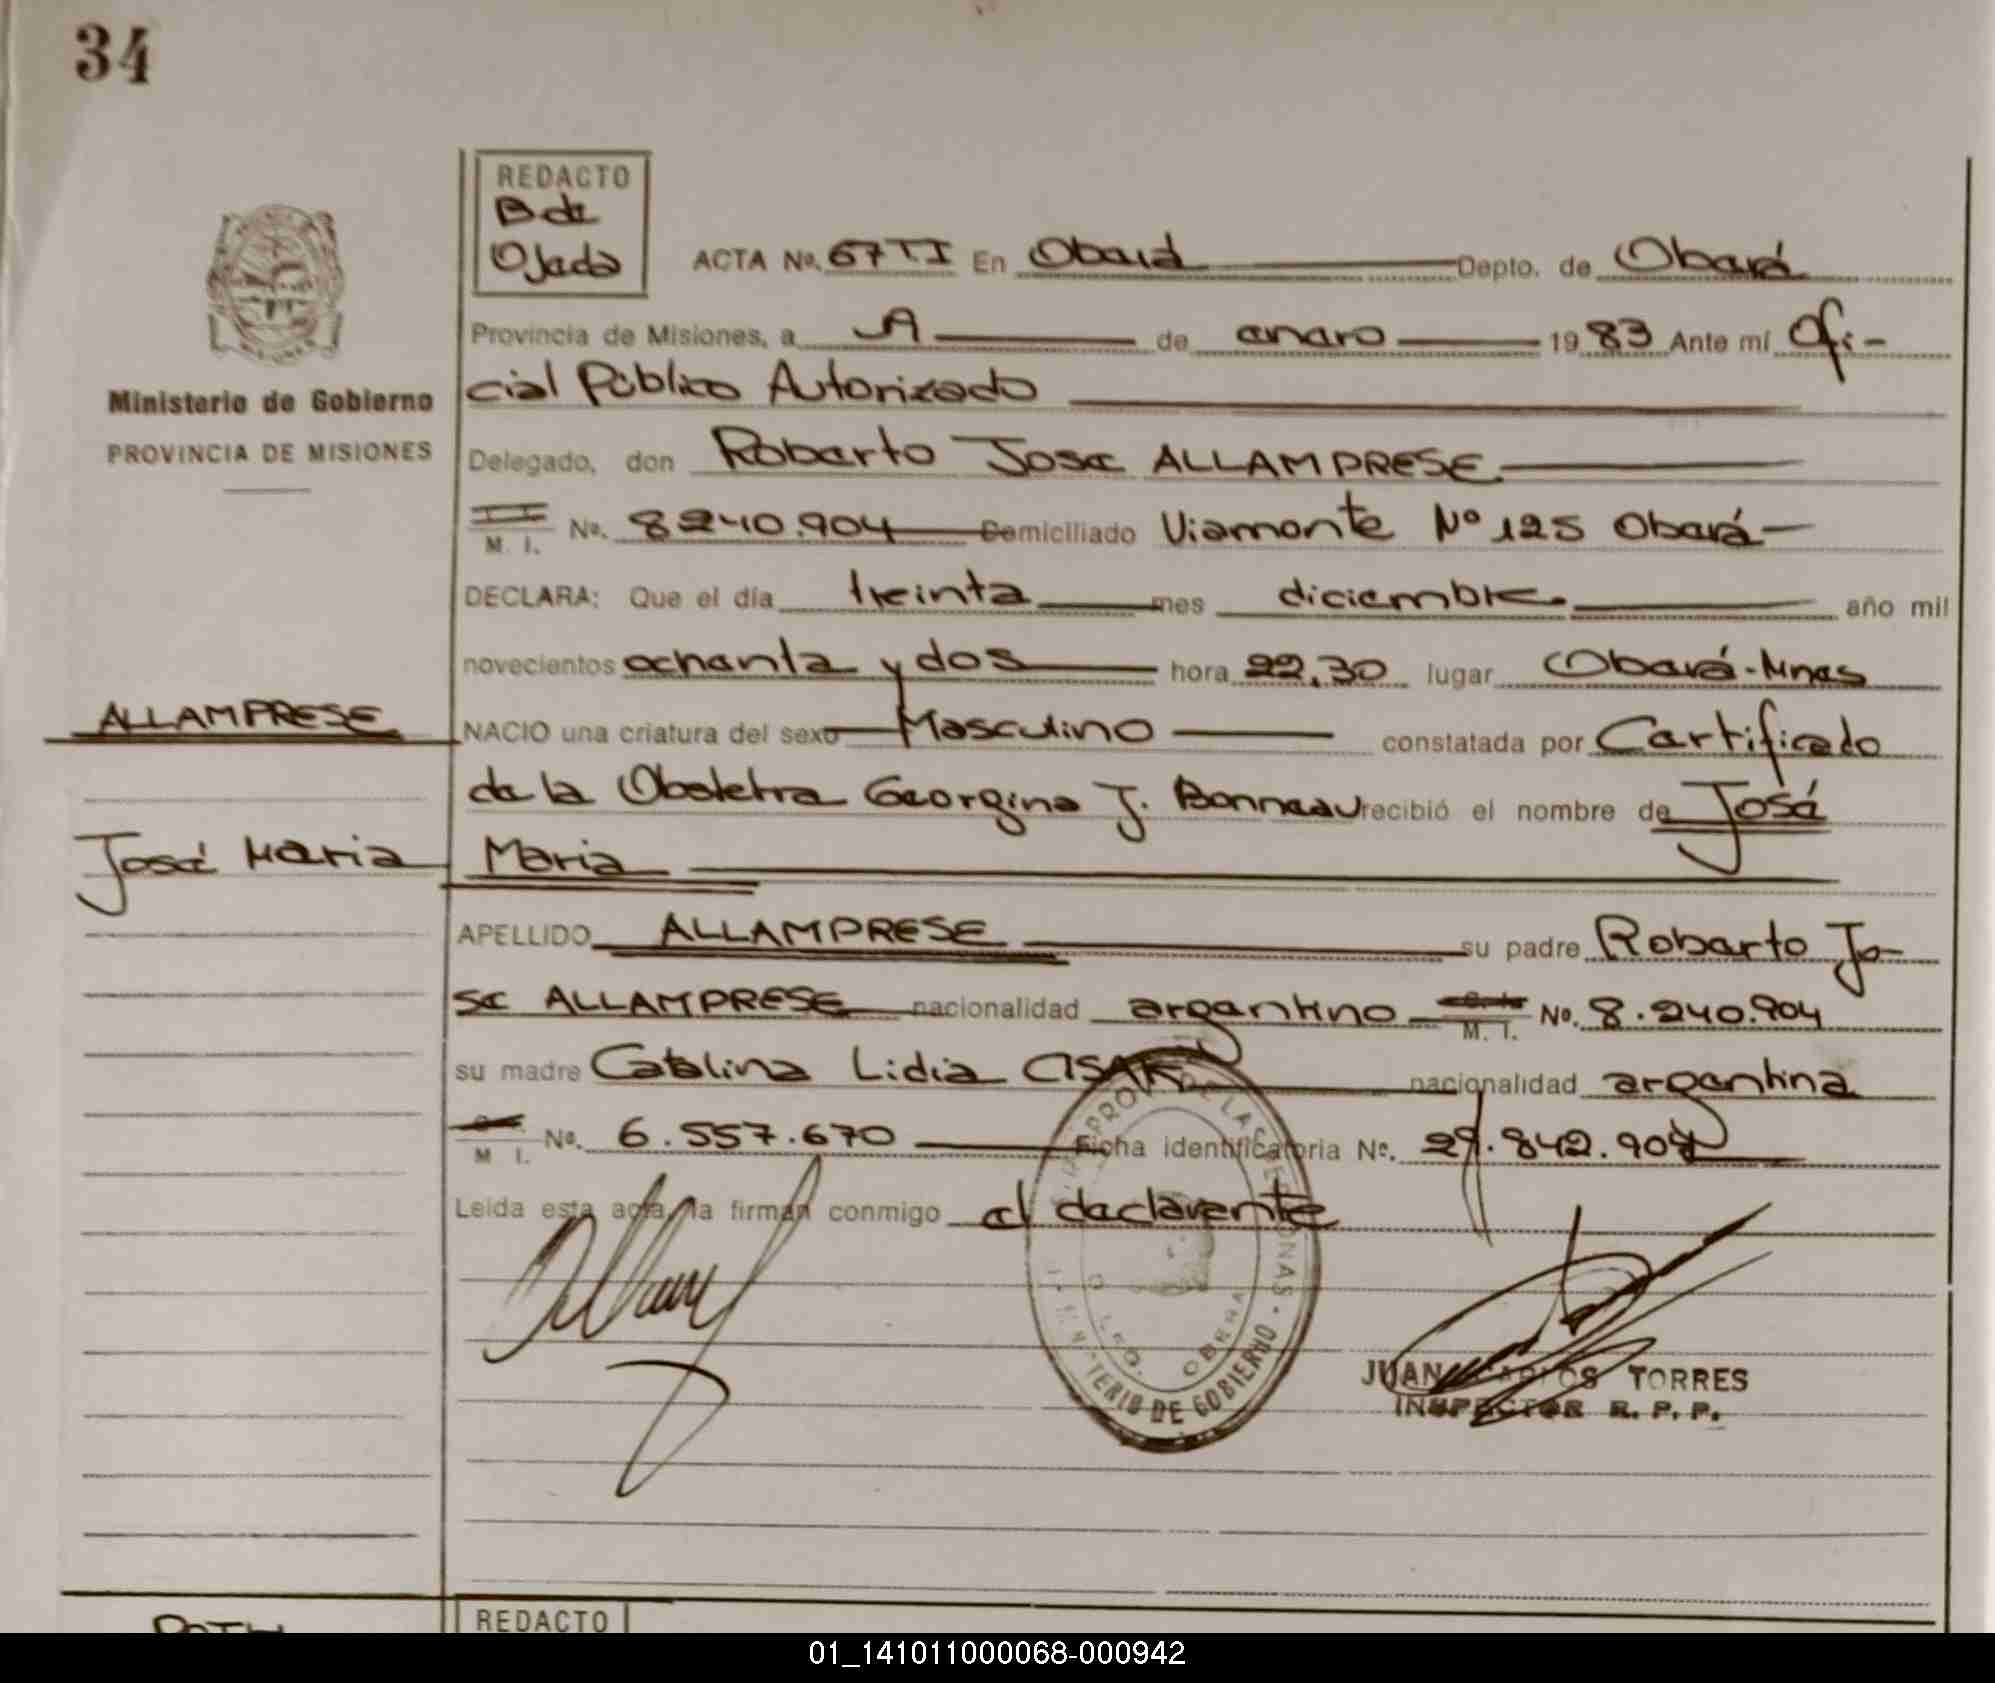 34
REDACTO
B de
Ojeda
ACTA No. 67 TI En Oberá Depto. de Oberá
Provincia de Misiones, a de enero 1983 Ante mí Ofi-
cial Público Autorizado
Ministerio de Gobierno
PROVINCIA DE MISIONES
Delegado, don Roberto Jose ALLAMPRESE
M. I. No. 8240.904 Domiciliado Viamonte Nº 125 Oberá
DECLARA: Que el día treinta mes diciembre año mil
novecientos ochenta y dos hora 22,30 lugar Oberá-Mnes
ALLAMPRESE
NACIO una criatura del sexo Masculino constatada por Certificado
de la Obstetra Georgina J. Bonneau recibió el nombre de José
José Maria
Maria
APELLIDO ALLAMPRESE su padre Roberto Jo-
se ALLAMPRESE nacionalidad argentino M. I. No. 8.240.904
su madre Catalina Lidia nacionalidad argentina
M I. No. 6.557.670 Ficha identificatoria No. 29.842.904
Leída esta acta, la firman conmigo el declarente
MINISTERIO DE GOBIERNO
OBERA
JUAN CARLOS TORRES
INSPECTOR R. P. P.
REDACTO
01_141011000068-000942